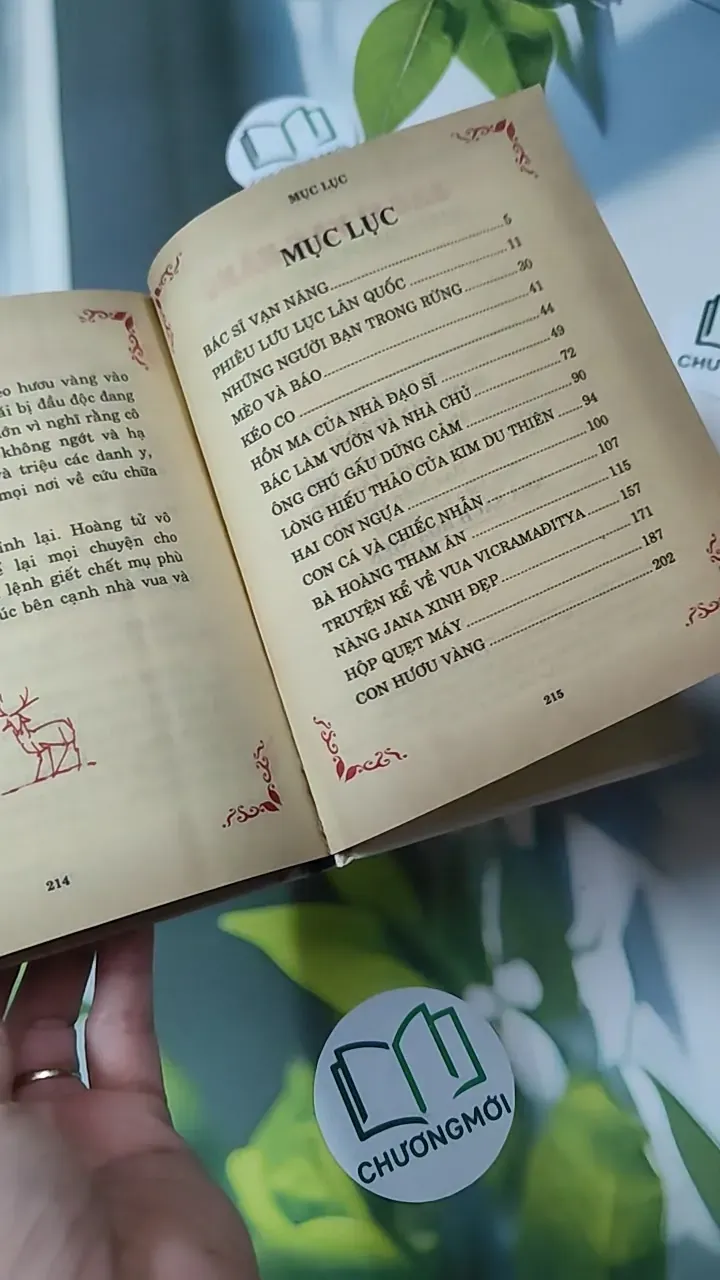 eo hươu vàng vào
ái bị đầu độc đang
ớn vì nghĩ rằng cô
không ngớt và hạ
và triệu các danh y,
mọi nơi về cứu chữa
ỉnh lại. Hoàng tử vô
lại mọi chuyện cho
lệnh giết chết mụ phù
úc bên cạnh nhà vua và
214
MỤC LỤC
MỤC LỤC
BÁC SĨ VẠN NĂNG 5
PHIÊU LƯU LỤC LÂN QUỐC 11
NHỮNG NGƯỜI BẠN TRONG RỪNG 20
MÈO VÀ BÁO 41
KÉO CO 44
HỒN MA CỦA NHÀ ĐẠO SĨ 49
BÁC LÀM VƯỜN VÀ NHÀ CHỦ 72
ÔNG CHÚ GẤU DŨNG CẢM 90
LÒNG HIẾU THẢO CỦA KIM DU THIÊN 94
HAI CON NGỰA 100
CON CÁ VÀ CHIẾC NHẪN 107
BÀ HOÀNG THAM ĂN 115
TRUYỆN KỂ VỀ VUA VICRAMAĐITYA 157
NÀNG JANA XINH ĐẸP 171
HỘP QUẸT MÁY 187
CON HƯƠU VÀNG 202
215
CHƯƠNGMỚI